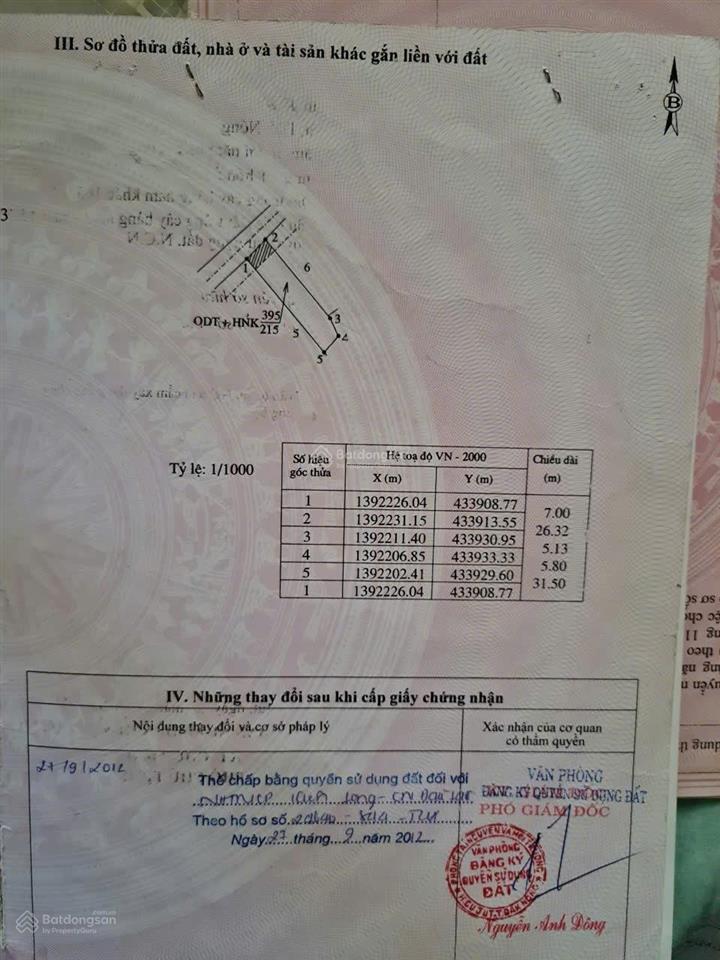 III. Sơ đồ thửa đất, nhà ở và tài sản khác gắn liền với đất
B
3
2
1
6
3
4
5
5
ODT + HNK 395
215
Tỷ lệ: 1/1000
Số hiệu góc thửa
Hệ toạ độ VN - 2000
Chiều dài (m)
X (m) Y (m)
1 1392226.04 433908.77
7.00
2 1392231.15 433913.55
26.32
3 1392211.40 433930.95
5.13
4 1392206.85 433933.33
5.80
5 1392202.41 433929.60
31.50
1 1392226.04 433908.77
Batdongsan
by PropertyGuru
IV. Những thay đổi sau khi cấp giấy chứng nhận
Nội dung thay đổi và cơ sở pháp lý
Xác nhận của cơ quan
có thẩm quyền
27/9/2012
Thế chấp bằng quyền sử dụng đất đối với
Theo hồ sơ số
Ngày 27 tháng 9 năm 2012
VĂN PHÒNG
ĐĂNG KÝ QUYỀN SỬ DỤNG ĐẤT
PHÓ GIÁM ĐỐC
PHÒNG TÀI NGUYÊN VÀ MÔI TRƯỜNG
VĂN PHÒNG
ĐĂNG KÝ
QUYỀN SỬ DỤNG
ĐẤT
H. CƯ JÚT T. ĐĂK NÔNG
Nguyễn Anh Đông
Batdongsan.com.vn
by PropertyGuru